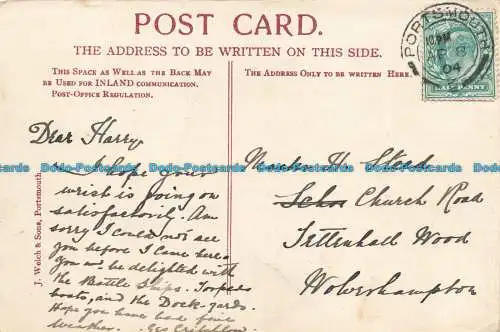 POST CARD.
THE ADDRESS TO BE WRITTEN ON THIS SIDE.
THIS SPACE AS WELL AS THE BACK MAY
BE USED FOR INLAND COMMUNICATION.
POST-OFFICE REGULATION.
THE ADDRESS ONLY TO BE WRITTEN HERE.
PORTSMOUTH
04
HALF PENNY
Dear Harry
I hope your
wrist is going on
satisfactorily. Am
sorry I could not see
you before I came here.
You would be delighted with
the Battle Ships. Torpedo
boats, and the Dock-yards.
Hope you have had fine
weather. Geo Critchlow
Master H Steed
Church Road
Tettenhall Wood
Wolverhampton
J. Welch & Sons, Portsmouth.
Dodo-Postcards Dodo-Postcards Dodo-Postcards Dodo-Postcards Dodo-Postcards